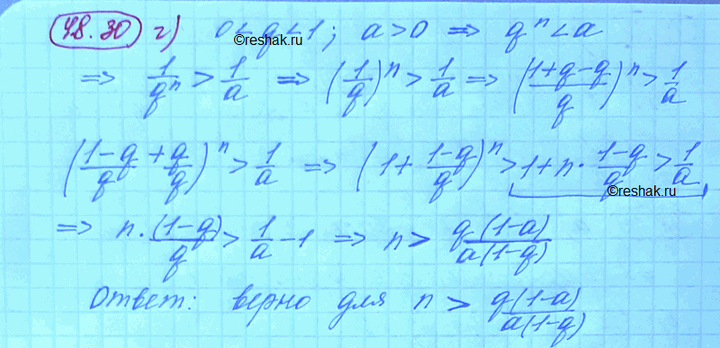 48.30 г) 0<q<1; a>0 ⇒ qⁿ<a
©reshak.ru
⇒ 1/qⁿ > 1/a ⇒ (1/q)ⁿ > 1/a ⇒ ((1+q-q)/q)ⁿ > 1/a
((1-q)/q + q/q)ⁿ > 1/a ⇒ (1+ (1-q)/q)ⁿ > 1+n·(1-q)/q > 1/a
©reshak.ru
⇒ n·(1-q)/q > 1/a -1 ⇒ n > q(1-a)/a(1-q)
Ответ: верно для n > q(1-a)/a(1-q)